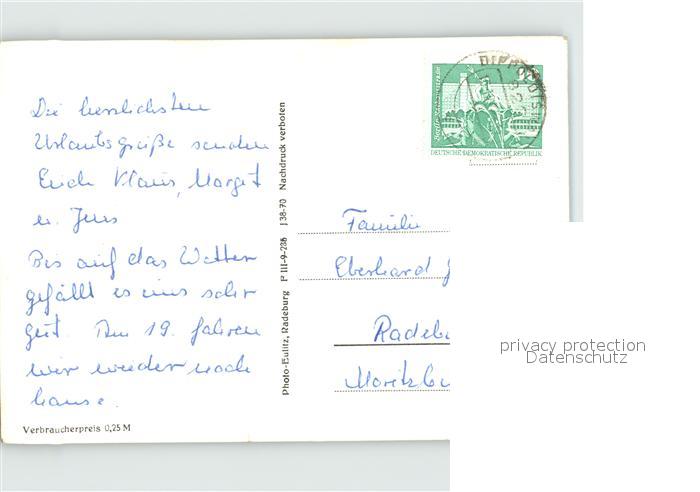 Die herzlichsten
Urlaubsgrüße senden
Euch Klaus, Margit
u. Jens
Bis auf das Wetter
gefällt es uns sehr
gut. Am 19. fahren
wir wieder nach
hause.
Verbraucherpreis 0,25 M
Photo-Eulitz, Radeburg P III-9-286 J 38-70 Nachdruck verboten
10
DEUTSCHE DEMOKRATISCHE REPUBLIK
Familie
Eberhard
Radeb
Moritzbu
privacy protection
Datenschutz